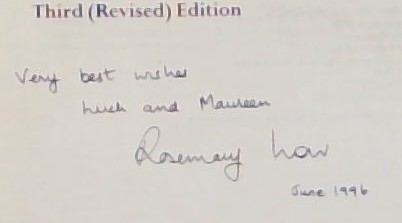 Third (Revised) Edition
Very best wishes
and Maureen
Rosemary Low
June 1996